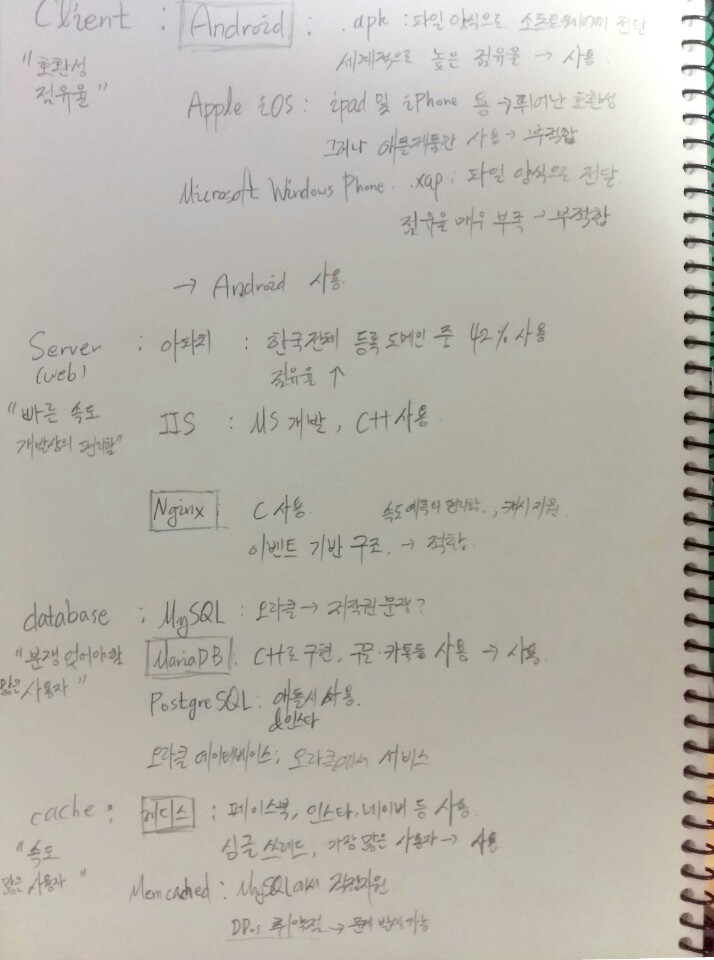 Client : Android : .apk : 파일 양식으로 소프트웨어 전달
"호환성 세계적으로 높은 점유율 → 사용.
점유율"
Apple iOS : ipad 및 iPhone 등 → 뛰어난 호환성
그러나 애플제품만 사용 → 부적합
Microsoft Windows Phone. .xap : 파일 양식으로 전달
점유율 매우 부족 → 부적합
→ Android 사용.
Server : 아파치 : 한국전체 등록 도메인 중 42% 사용
(web) 점유율 ↑
"빠른 속도 IIS : MS 개발, C++ 사용.
개발상의 편리함"
Nginx C 사용. 속도 편리함., 캐시 지원.
이벤트 기반 구조. → 적합.
database : MySQL : 오라클 → 저작권 문쟁?
"분쟁 없어야함 MariaDB. C++로 구현, 구글·카톡등 사용 → 사용.
많은 사용자" PostgreSQL : 애플시 사용.
&인스타
오라클 데이터베이스 : 오라클에서 서비스
cache : 레디스 : 페이스북, 인스타, 네이버 등 사용.
"속도 싱글 쓰레드, 가장 많은 사용자 → 사용.
많은 사용자" Memcached : MySQL에서 직접지원
DDos 취약점 → 문제 발생 가능